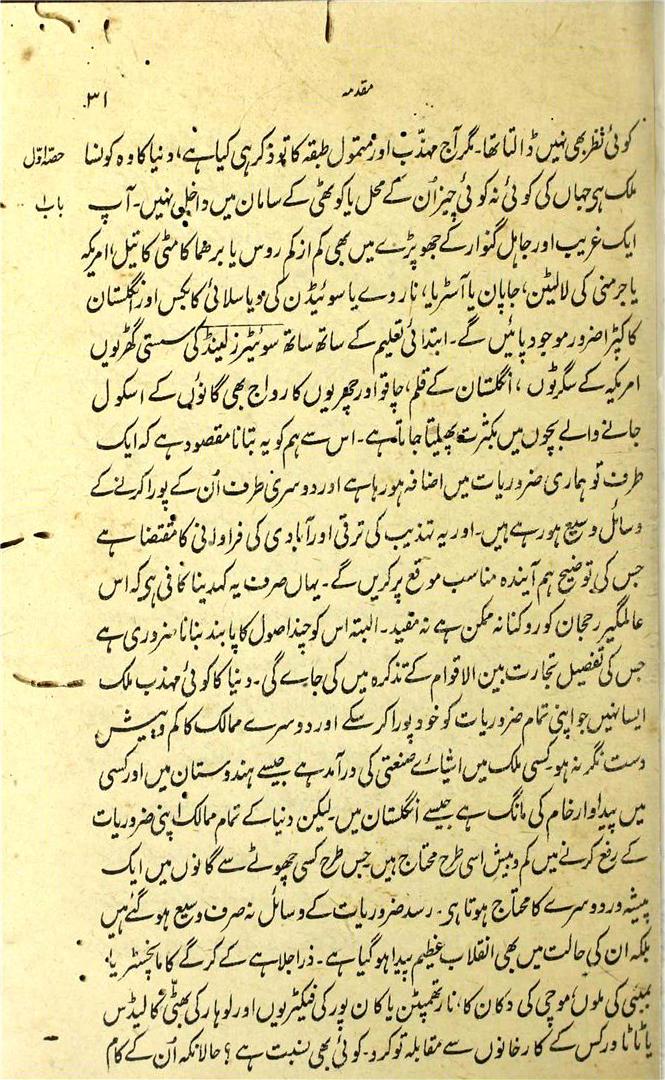 مقدمہ
۳۱
حصّہ اوّل
باب ۱
کوئی نظر بھی نہیں ڈالتا تھا۔ مگر آج مہذّب اور متمول طبقہ کا تو ذکر ہی کیا ہے، دنیا کا وہ کونسا
ملک ہی جہاں کی کوئی نہ کوئی چیز اُن کے محل یا کوٹھی کے سامان میں داخل نہیں۔ آپ
ایک غریب اور جاہل گنوار کے جھوپڑے میں بھی کم از کم روس یا برھما کا مٹی کا تیل، امریکہ
یا جرمنی کی لالٹین، جاپان یا آسٹریا، ناروے یا سوئیڈن کی دیا سلائی کا بکس اور انگلستان
کا کپڑا ضرور موجود پائیں گے۔ ابتدائی تعلیم کے ساتھ ساتھ سوئیٹرزلینڈ کی سستی گھڑیوں
امریکہ کے سگرٹوں، انگلستان کے قلم، چاقو اور چھریوں کا رواج بھی گانوں کے اسکول
جانے والے بچوں میں بکثرت پھیلتا جاتا ہے۔ اس سے ہم کو یہ بتانا مقصود ہے کہ ایک
طرف تو ہماری ضروریات میں اضافہ ہو رہا ہے اور دوسری طرف اُن کے پورا کرنے کے
وسائل وسیع ہو رہے ہیں۔ اور یہ تہذیب کی ترقی اور آبادی کی فراوانی کا مقتضا ہے
جس کی توضیح ہم آیندہ مناسب موقع پر کریں گے۔ یہاں صرف یہ کہدینا کافی ہی کہ اس
عالمگیر رحجان کو روکنا نہ ممکن ہے نہ مفید۔ البتہ اس کو چند اصول کا پابند بنانا ضروری ہے
جس کی تفصیل تجارت بین الاقوام کے تذکرہ میں کی جاے گی۔ دنیا کا کوئی مہذب ملک
ایسا نہیں جو اپنی تمام ضروریات کو خود پورا کر سکے اور دوسرے ممالک کا کم و بیش
دست نگر نہ ہو۔ کسی ملک میں اشیائے صنعتی کی درآمد ہے جیسے ہندوستان میں اور کسی
میں پیداوار خام کی مانگ ہے جیسے انگلستان میں۔ لیکن دنیا کے تمام ممالک اپنی ضروریات
کے رفع کرنے میں کم و بیش اسی طرح محتاج ہیں جس طرح کسی چھوٹے سے گانوں میں ایک
پیشہ ور دوسرے کا محتاج ہوتا ہی۔ رسد ضروریات کے وسائل نہ صرف وسیع ہو گئے ہیں
بلکہ ان کی حالت میں بھی انقلاب عظیم پیدا ہو گیا ہے۔ ذرا جلاہے کے کرگے کا مانچسٹر یا
بمبئی کی ملوں، موچی کی دکان کا، نارتھمپٹن یا کان پور کی فیکٹریوں اور لوہار کی بھٹی کا لیڈس
یا ٹاٹا ورکس کے کارخانوں سے مقابلہ تو کرو۔ کوئی بھی نسبت ہے؟ حالانکہ اُن کے کام